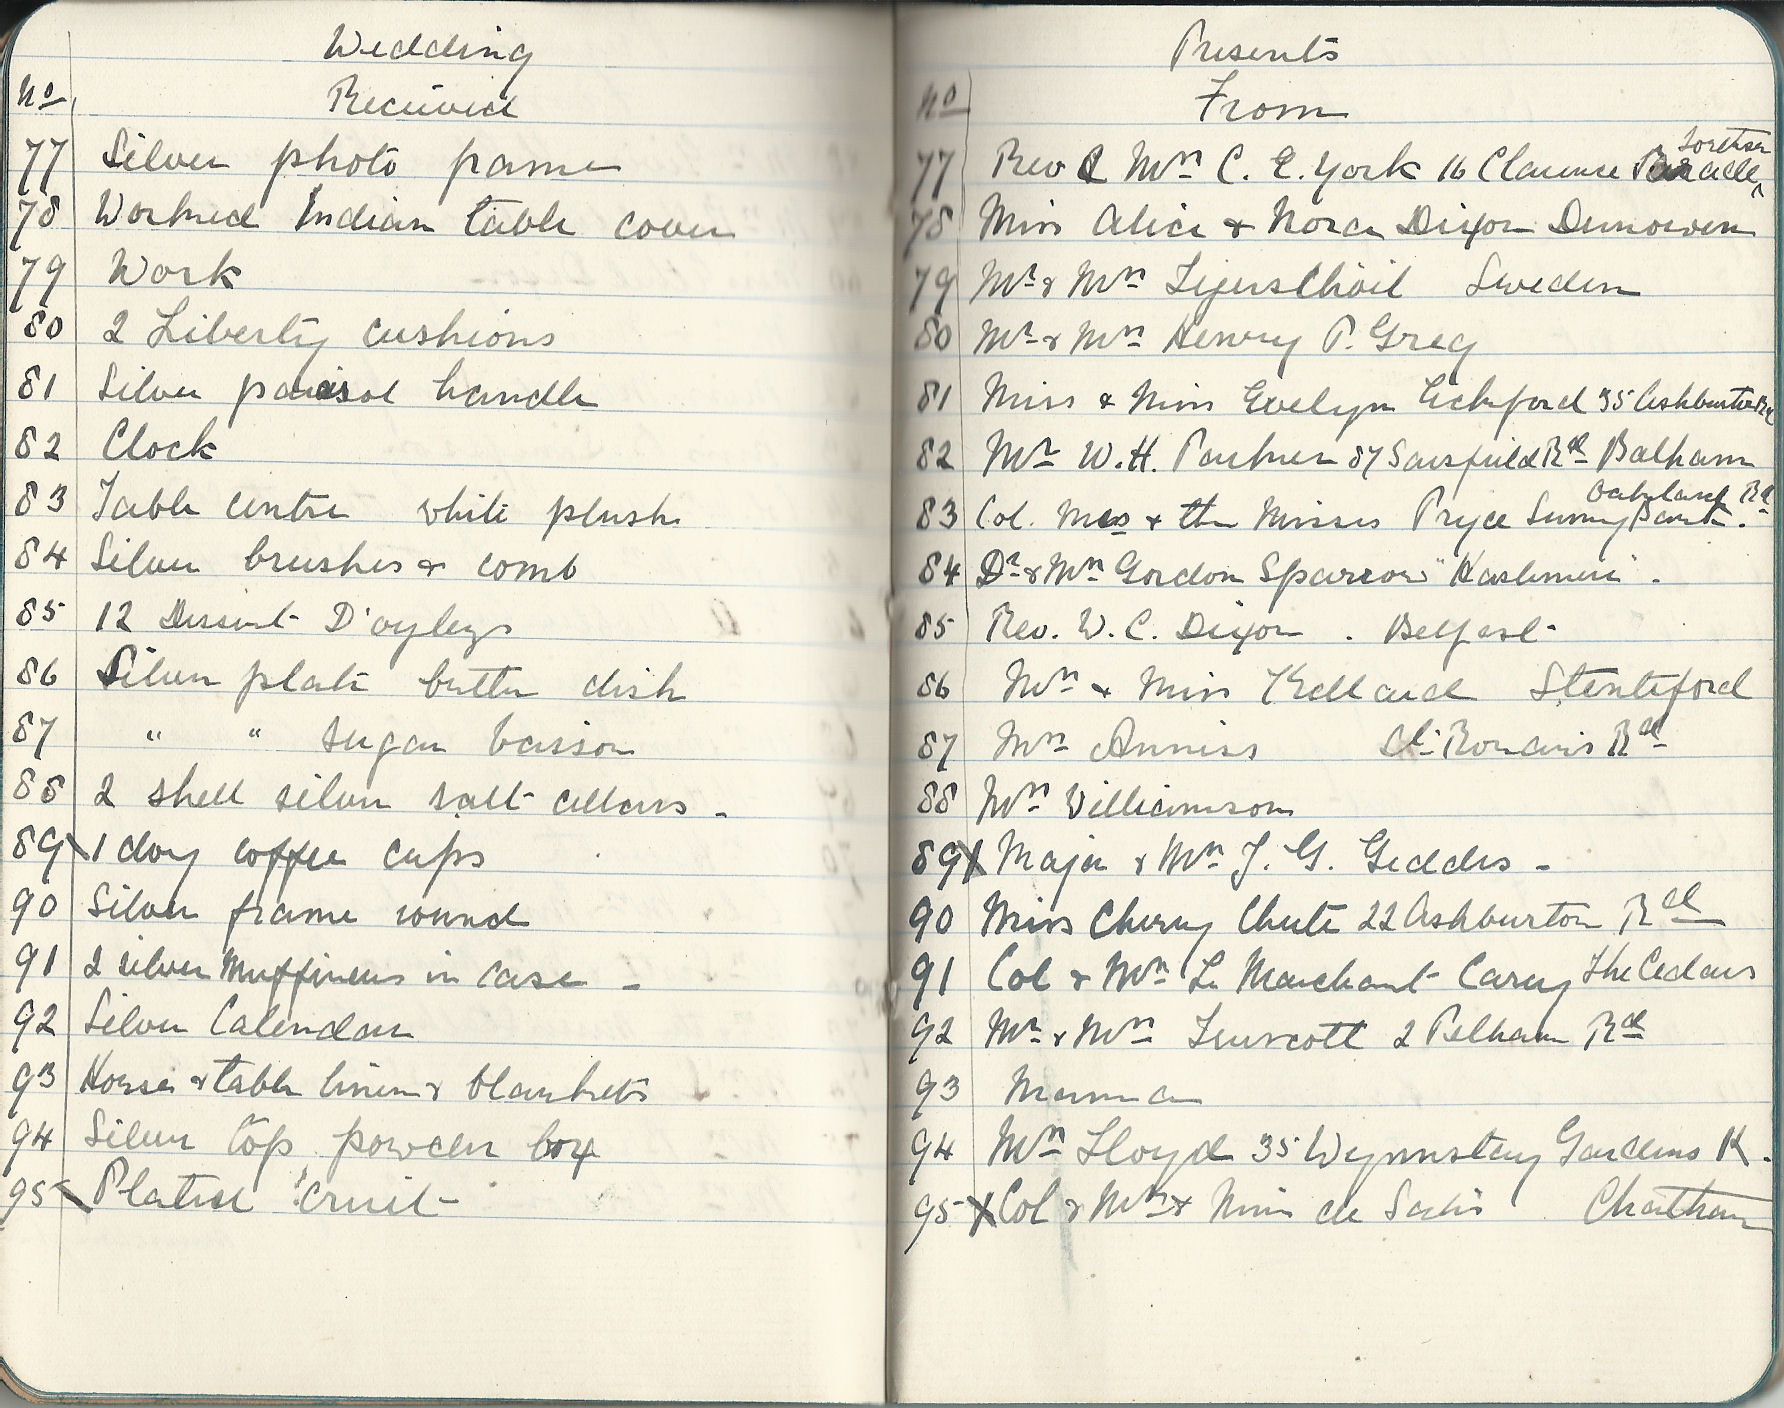 Wedding
No Received
77 Silver photo frame
78 Worked Indian table cover
79 Work
80 2 Liberty cushions
81 Silver parasol handle
82 Clock
83 Table centre white plush
84 Silver brushes & comb
85 12 Dessert D'oyleys
86 Silver plate butter dish
87 " " sugar basson
88 2 shell silver salt cellars -
89 1 doz coffee cups
90 Silver frame round
91 2 silver Muffineers in case -
92 Silver Calendar
93 House & table linen & blankets
94 Silver top powder box
95 Plated cruit
Presents
No From
Southsea
77 Rev & Mrs C. E. York 16 Clarence Parade
78 Miss Alice & Nora Dixon Dunowen
79 Mr & Mrs Sweden
80 Mr & Mrs Henry P. Greg
81 Miss & Miss Evelyn Eckford 35 Ashburton Rd
82 Mr W. H. 87 Balham
Oakland Rd
83 Col. Mrs & the Misses Pryce Sunny Bank.
84 Dr & Mrs Gordon Sparrow "Kashmir".
85 Rev. W. C. Dixon . Belfast
86 Mrs & Miss Kellard
87 Mrs Anniss St Ronans Rd
88 Mrs Williamson
89 Major & Mrs J. G. Geddes -
90 Miss Cherry Chute 22 Ashburton Rd
91 Col & Mrs Le Marchant Carey The Cedars
92 Mr & Mrs 2 Pelham Rd
93 Mamma
94 Mrs Lloyd 35 Wynnstay Gardens K.
95 Col & Mrs & Miss de Salis Chatham